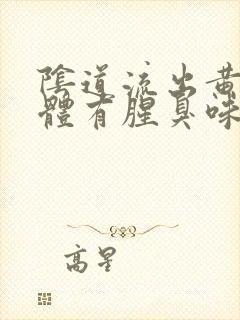 陰道流出黃
體有腥臭味
高星